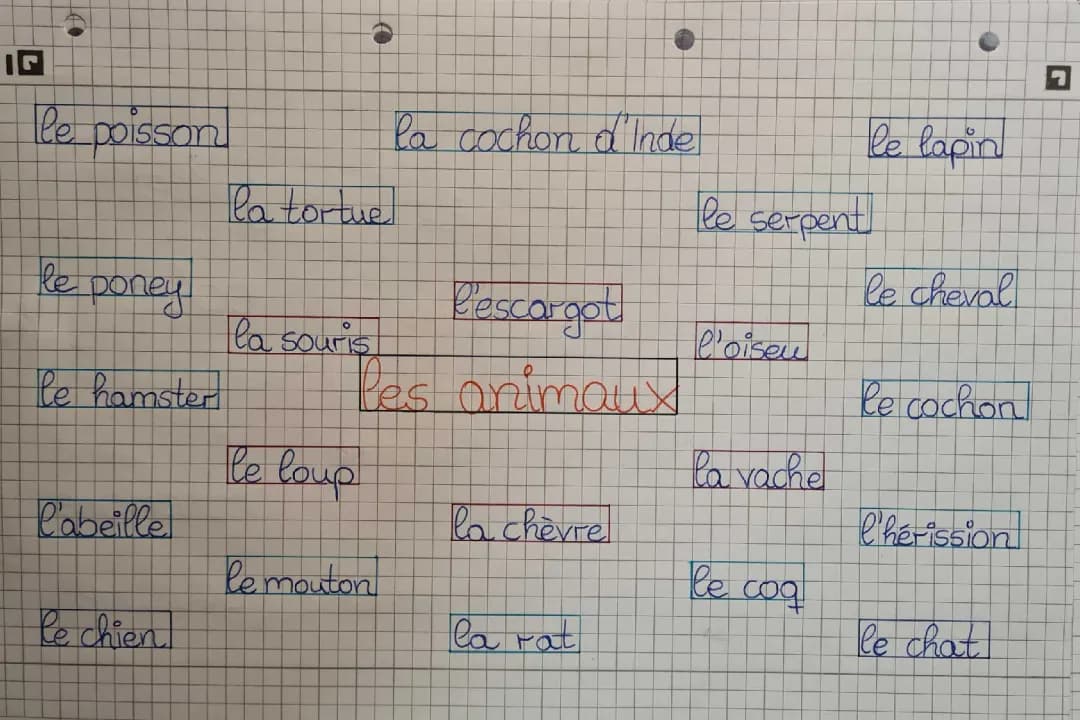 le poisson
la cochon d'Inde
le lapin
la tortue
le serpent
le poney
l'escargot
le cheval
la souris
l'oiseu
les animaux
le hamster
le cochon
le loup
la vache
l'abeille
la chèvre
l'hérission
le mouton
le coq
le chien
la rat
le chat